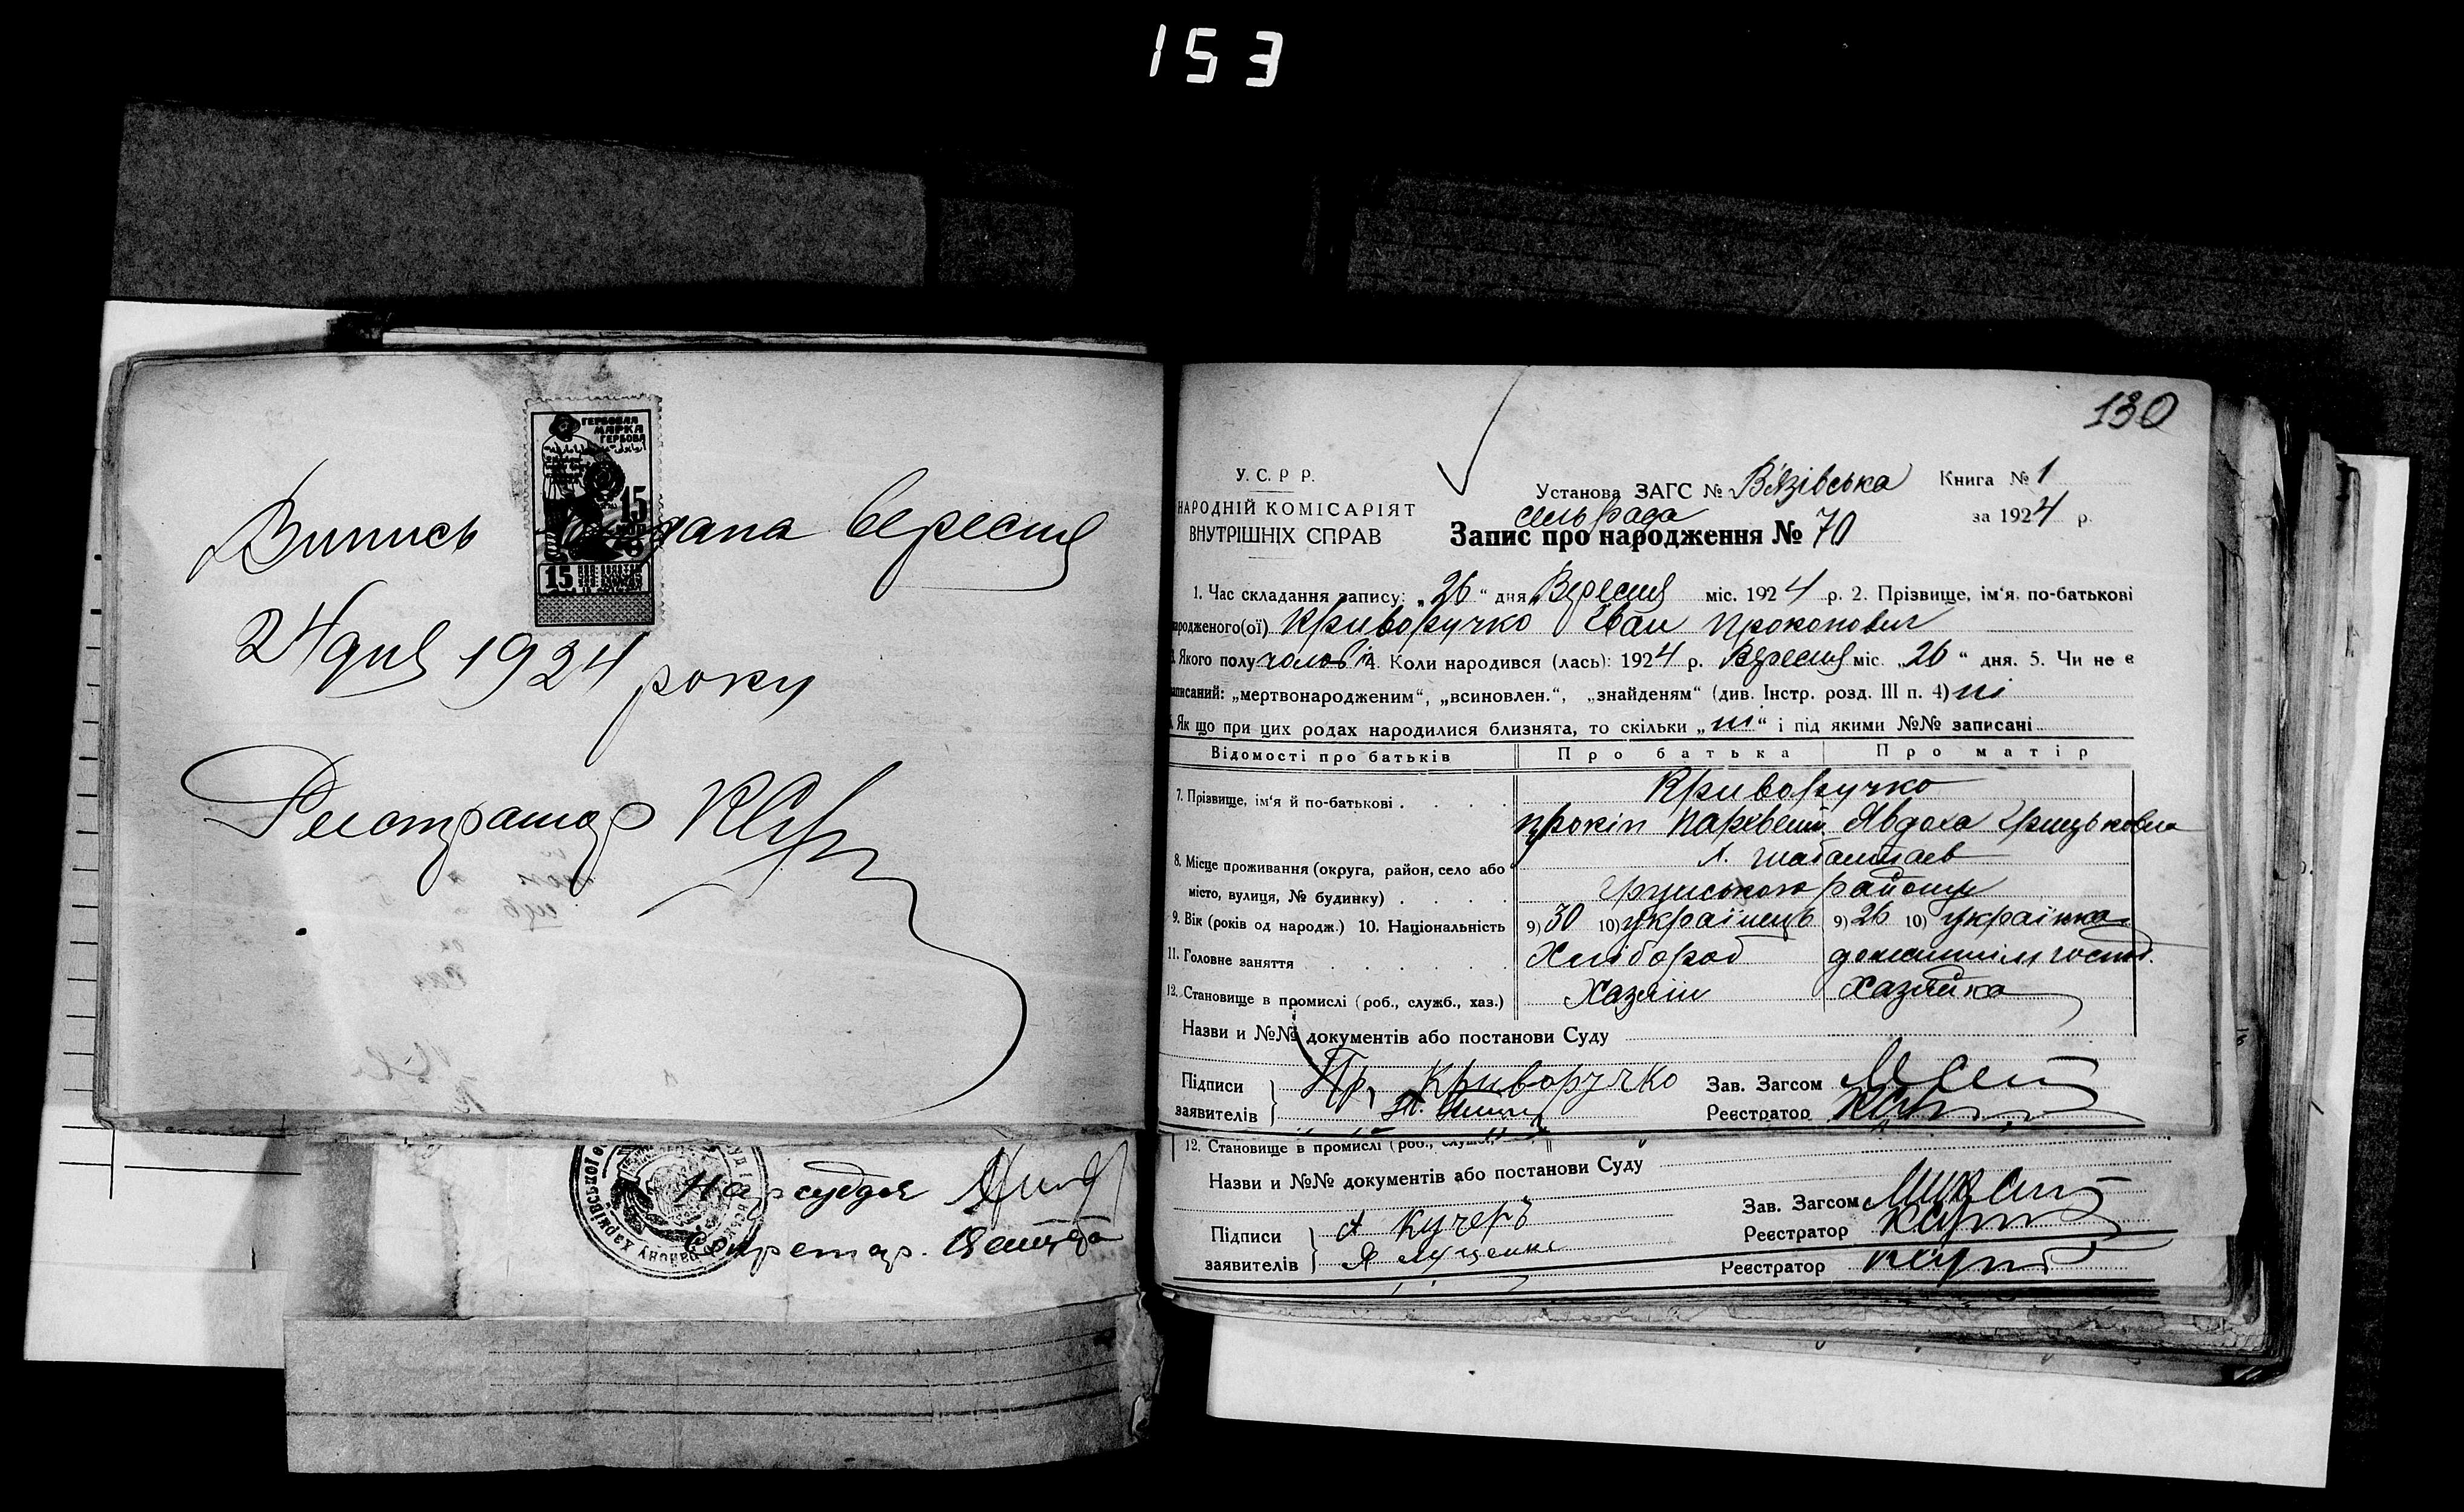 153
ГЕРБОВАЯ
МАРКА
ГЕРБОВА
15
15
Випись видана вересня
24 дня 1924 року
Реєстратор
Нарсуддя
Секретар.
130
У. С. Р. Р.
НАРОДНІЙ КОМІСАРІЯТ
ВНУТРІШНІХ СПРАВ
Установа ЗАГС № Вʼязівська
сельрада
Книга № 1
за 1924 р.
Запис про народження № 70
1. Час складання запису: „26“ дня Вересня міс. 1924 р. 2. Прізвище, імʼя, по-батькові
народженого(ої) Криворучко Єван Прокопович
Якого полу чолов 4. Коли народився (лась): 1924 р. Вересня міс. „26“ дня. 5. Чи не є
записаний: „мертвонародженим“, „всиновлен.“, „знайденям“ (див. Інстр. розд. III п. 4) ні
Як що при цих родах народилися близнята, то скільки „ні“ і під якими №№ записані
Відомості про батьків Про батька Про матір
7. Прізвище, імʼя й по-батькові . . . . Криворучко
Прокіп Авдоха Грицьковна
8. Місце проживання (округа, район, село або х.
місто, вулиця, № будинку) . . . . району
9. Вік (років од народж.) 10. Національність 9) 30 10) українець 9) 26 10) українка
11. Головне заняття . . . . . . Хлібороб домашнім госпо.
12. Становище в промислі (роб., служб., хаз.) Хазяїн Хазяйка
Назви и №№ документів або постанови Суду
Підписи заявителів } Пр. Криворучко
Зав. Загсом
Реєстратор
12. Становище в промислі (роб.,
Назви и №№ документів або постанови Суду
Підписи заявителів } А Кучеръ
Я Луценко
Зав. Загсом
Реєстратор
Реєстратор